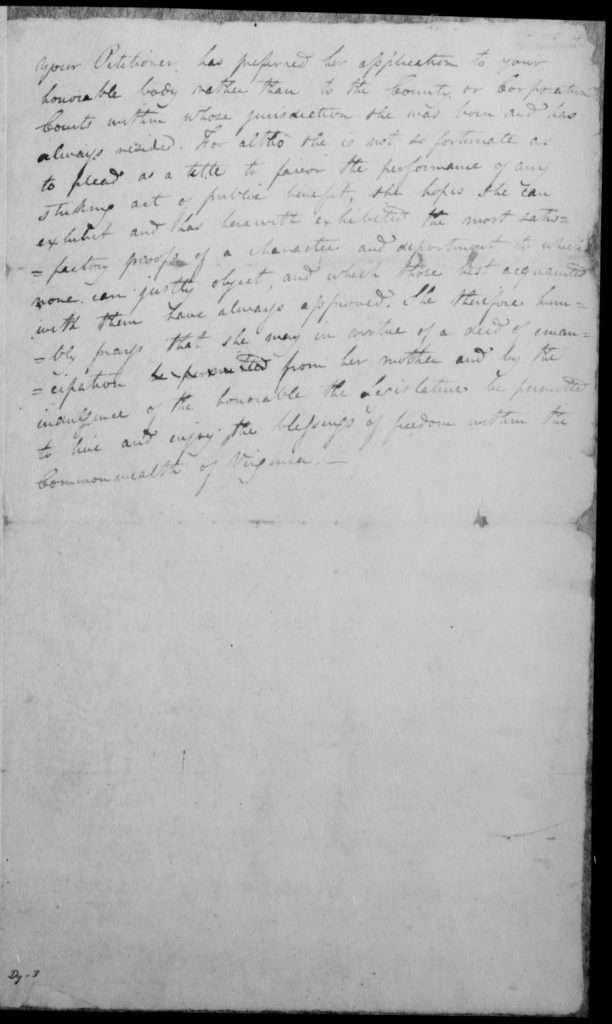 your Petitioner has preferred her application to your
honorable body rather than to the County or Corporation
Courts within whose jurisdiction she was born and has
always resided. For altho she is not so fortunate as
to plead as a title to favor the performance of any
striking act of public benefit, she hopes she can
exhibit and has herewith exhibited the most satis=
=factory proofs of a character and deportment to which
none can justly object, and which those best acquainted
with them have always approved. She therefore hum=
=bly prays that she may in virtue of a deed of eman=
=cipation be permitted from her mother and by the
indulgence of the honorable the Legislature be permitted
to live and enjoy the blessings of freedom within the
Commonwealth of Virginia. —
Dy-3